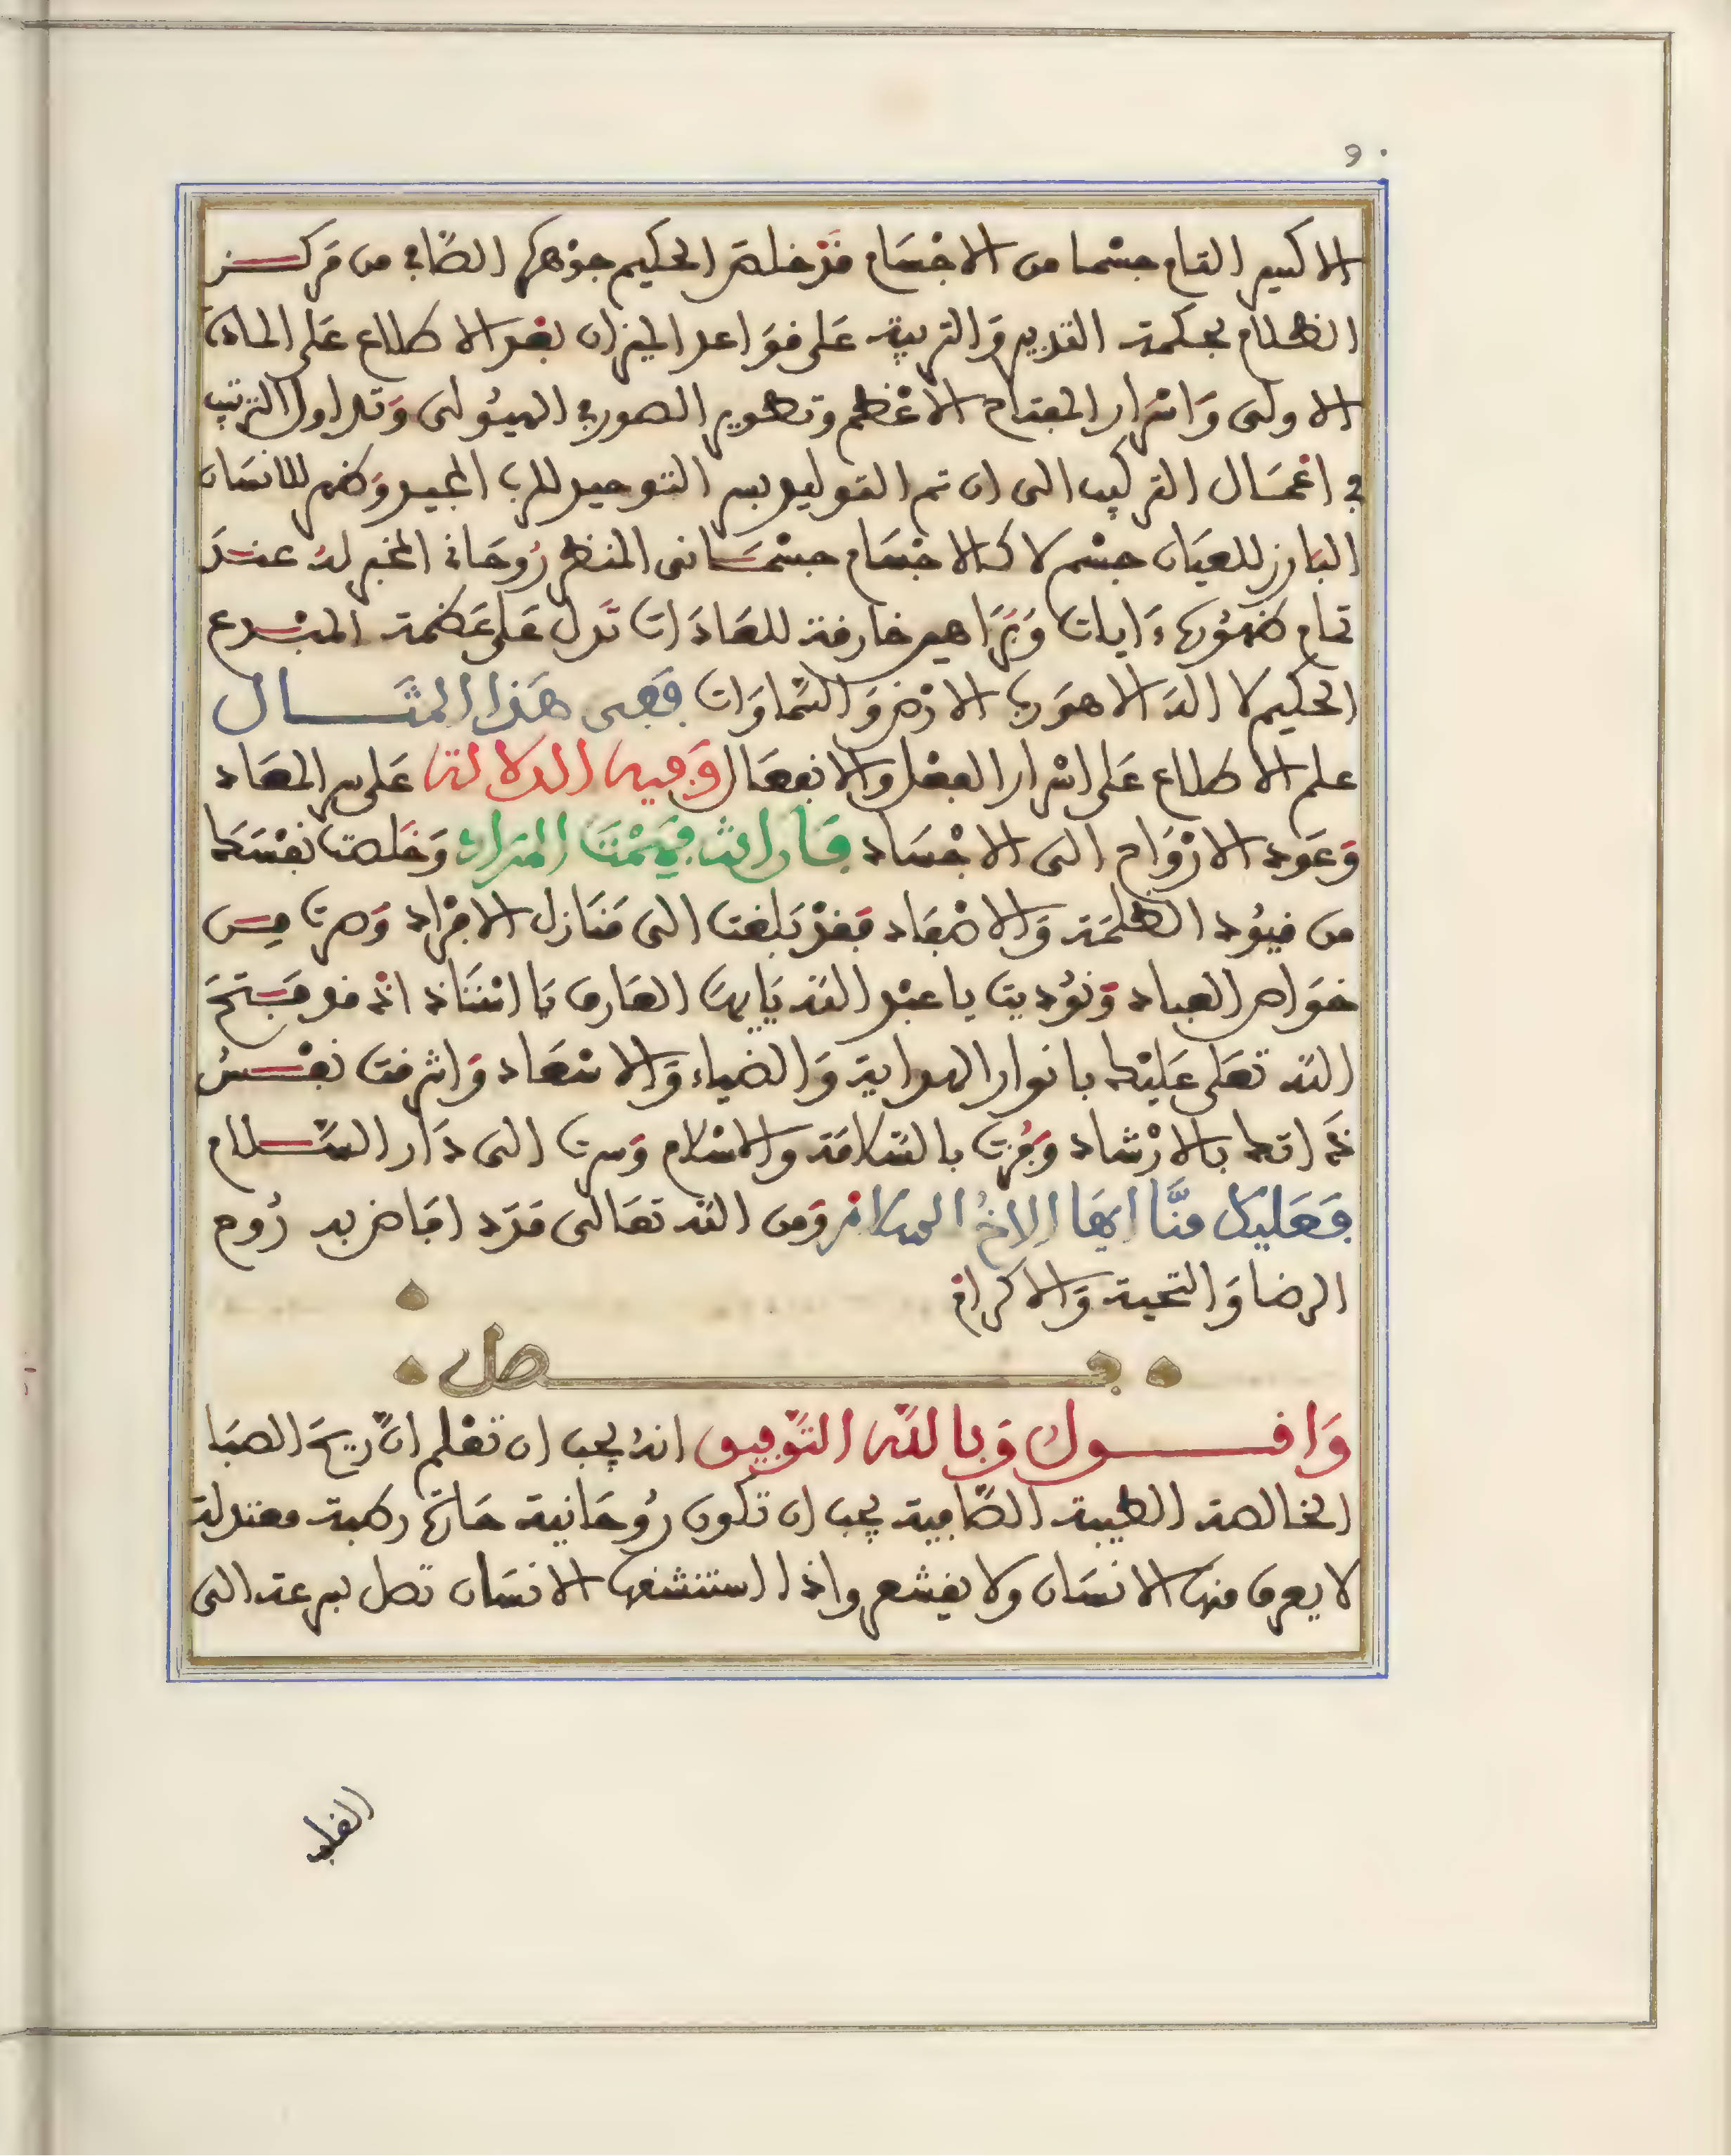 9.
الاكسير التام جسْما من الاجْسَام قَدْ خلصَ الحكيم جوْهرَه الصَّافي من مَركــز
الظلام بحكمة التدبير وَالتربية عَلى قوَاعد الميزان بعْد الاطلاع عَلى المادة
الاولى وَاسْرار المفتاح الاعْظم وتطوير الصور في الهيُولى وَتداول الترتيب
في اعْمَال التركيب الى ان تم التوليد بسر التوحيد للرب المجيد وَظهر للانسَان
البَارز للعيَان جسْم لا كالاجْسَام جسْمَــانى المنظر رُوحَاني المخبر لهُ عنــدَ
تمام ظهُوره ءَايات وَبَرَاهين خارقة للعَادَات تَدل عَلى عَظمة المبْــدع
الحكيم لا اله الا هوَ رب الارْض وَالسَّماوَات ففى هَذا المثَـــــال
علم الاطلاع عَلى اسْرار الفعْل والانفعَال وَفيه الدلالة عَلى سر المعَاد
وَعَود الارْوَاح الى الاجْسَاد فَان انْتَ فهِمْتَ المرَاد وَخَلصْت نفْسَك
من قيُود الظلمَة وَالاصْفَاد فقدْ بَلغت الى مَنَازل الافْرَاد وَصرت مِــن
خوَاص العباد وَنوُديت يا عبْد الله يَايهَا العَارف يَا اسْتَاذ اذ قد فَــتَحَ
الله تعَلى عَليْك بانوار الهداية وَالضياء وَالاسْعَاد وَاشرقت نفــسُ
ذَاتك بالارْشاد وَفُزت بالسَّلامَة والاسْلام وَسرت الى دَار السَّــلام
فعَليك منَّا ايهَا الاخُ السلام وَمن الله تعَالى مَدَد افَاض به رُوح
الرضا وَالتحية وَالاكرام
فـــــــــــصل
وَاقـــــــــول وَبالله التَّوْفيق انهُ يجب ان تعْلم انَّ ريحَ الصبَا
الخالصة الطيبة الصَّافية يجب ان تكون رُوحَانية حَارة رطبة معتدلة
لا يعرق منها الانسَان ولا يقشعر واذا استنشقها الانسَان تصل بسرعة الى
القلب